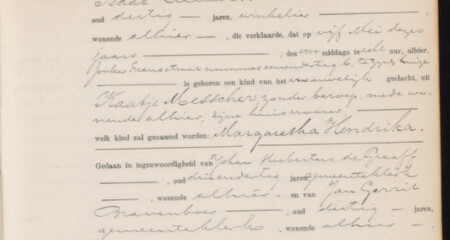 Isaac
oud dertig jaren, winkelier
wonende alhier, die verklaarde, dat op vijf Mei dezes
jaars, des middags te acht uur, alhier,
nummer
is geboren een kind van het mannelijk geslacht, uit
Kaatje Messcher, zonder beroep, mede wo-
nende alhier, zijne huisvrouw
welk kind zal genaamd worden: Margaretha Hendrika.
Gedaan in tegenwoordigheid van Johan Hubertus de Graaff
oud drieendertig jaren gemeenteklerk
wonende alhier en van Jan Gerrit
oud dertig jaren,
gemeenteklerk wonende alhier